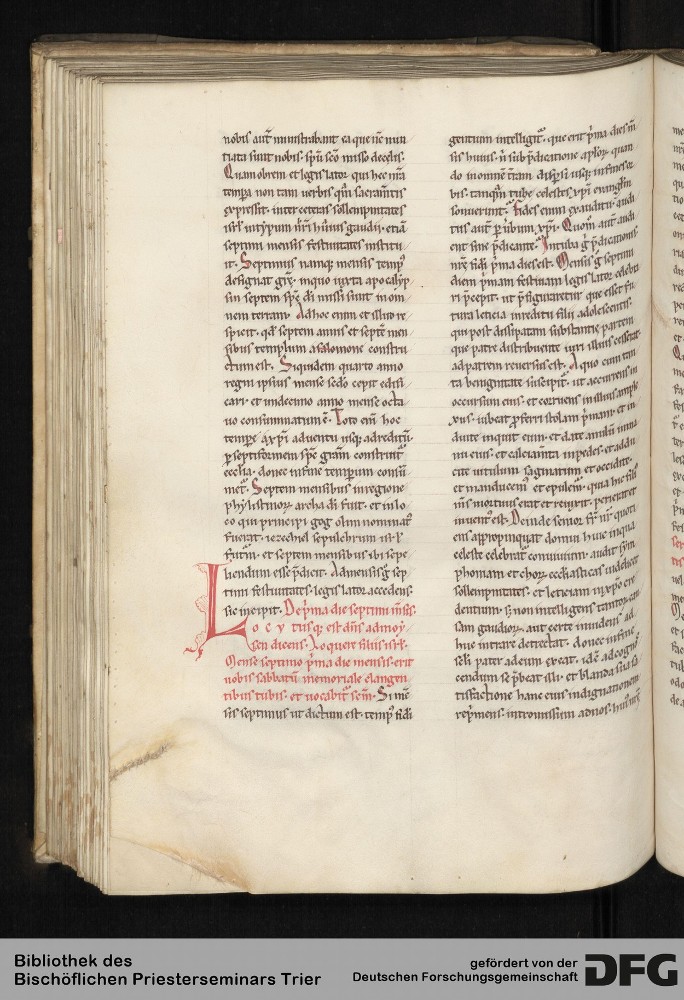 nobis aut̄ ministrabant ea que nc̄ nun
tiata sunt nobis· sp̄u sc̄o misso de celis·
Quam obrem et legis lator qui hec nr̄a
tempora non tam uerbis qm̄ sacram̄tis
expressit· inter ceteras sollempnitates
isrl̄· in typum nr̄i huius gaudii· etiā
septimi mensis festiuitates institu
it· Septimus namque mensis temp᷒
designat grē· in quo iuxta apocalyp
sin septem sp̄c dī missi sunt in om
nem terram· Ad hoc enim et illud re
spicit· qd̄ septem annis et septē men
sibus templum a salomone constru
ctum est· Siquidem quarto anno
regni ipsius mense sc̄do cepit edifi
cari· et undecimo anno mense octa
uo consummatum ē· Toto eni hoc
tempr̄e a xp̄i aduentu usq; ad reditū·
p septiformem sp̄c grām construit᷒
ecclia· donec in fine temporum consū
met᷒· Septem mensibus in regione
phylistinorꝝ archa dī fuit· et in lo
co qui principi gog olim nominat᷒
fuerat· iezechiel sepulchrum isrl̄
futm̄· et septem mensibus ibi sepe
liendum esse p̄dicit· Ad mensis ḡ sep
timi festiuitates· legis lator accedens·
sic incipit· De p̄ma die septimi m̄sis·
Locutusq; est dn̄s ad moy
sen dicens· Loquere filiis isrl̄·
Mense septimo p̄ma die mensis· erit
uobis sabbatū memoriale clangen
tibus tubis· et uocabit᷒ sc̄m· Si mē
sis septimus ut dictum est· temp᷒ fidi
gentium intelligit᷒· que erit p̄ma dies m̄
sis huius· n̄ sub p̄dicatione aplorꝝ· quan
do in omnē t̄ram dispsi usq; in fines or
bis· tanqm̄ tube celestes xp̄i euanglm̄
sonuerunt· Fides enim ex auditu· audi
tus aut̄ p uerbum xp̄i· Quom̄ aut̄ audi
ent sine p̄dicante· In tuba ḡ p̄dicationis
nr̄e fidi p̄ma dies est· Mensis ḡ septimi
diem p̄mam festiuam legis lator celebra
ri p̄cepit· ut p̄figuraretur que esset fu
tura leticia in reditu filii adolescentis·
qui post dissipatam substantie partem
que patre distribuente iuri illius cesserat·
ad patrem reuersus est· A quo cum tan
ta benignitate suscipit᷒· ut accurrens in
occursum eius· et corruens in illius ample
xus· iubeat proferri stolam p̄mam· et in
duite inquit eum· et date anulū in ma
nu eius· et calciamta in pedes· et addu
cite uitulum saginatum et occidite·
et manducem᷒ et epulem᷒· quia hic fili᷒
m̄s mortuus erat et reuixit· perierat et
inuent᷒ est· Deinde senior fr̄ nr̄ quoti
ens appropinquat domui huic in qua
celeste celebrat᷒ conuiuium· audit sym
phoniam et chorꝝ· ecclesiasticas uidelicet
sollempnitates· et leticiam in xp̄o cre
dentium· s; non intelligens tantorꝝ cau
sam gaudiorꝝ· aut certe inuidens ad
huc intrare detrectat· donec in fine
scl̄i pater ad eum exeat· idē ad cogno
scendum se p̄beat illi· et blanda sua sa
tisfactione hanc eius indignationem
rep̄mens· intromissum ad nos· hui᷒ mē
Bibliothek des
Bischöflichen Priesterseminars Trier
gefördert von der
Deutschen Forschungsgemeinschaft
DFG